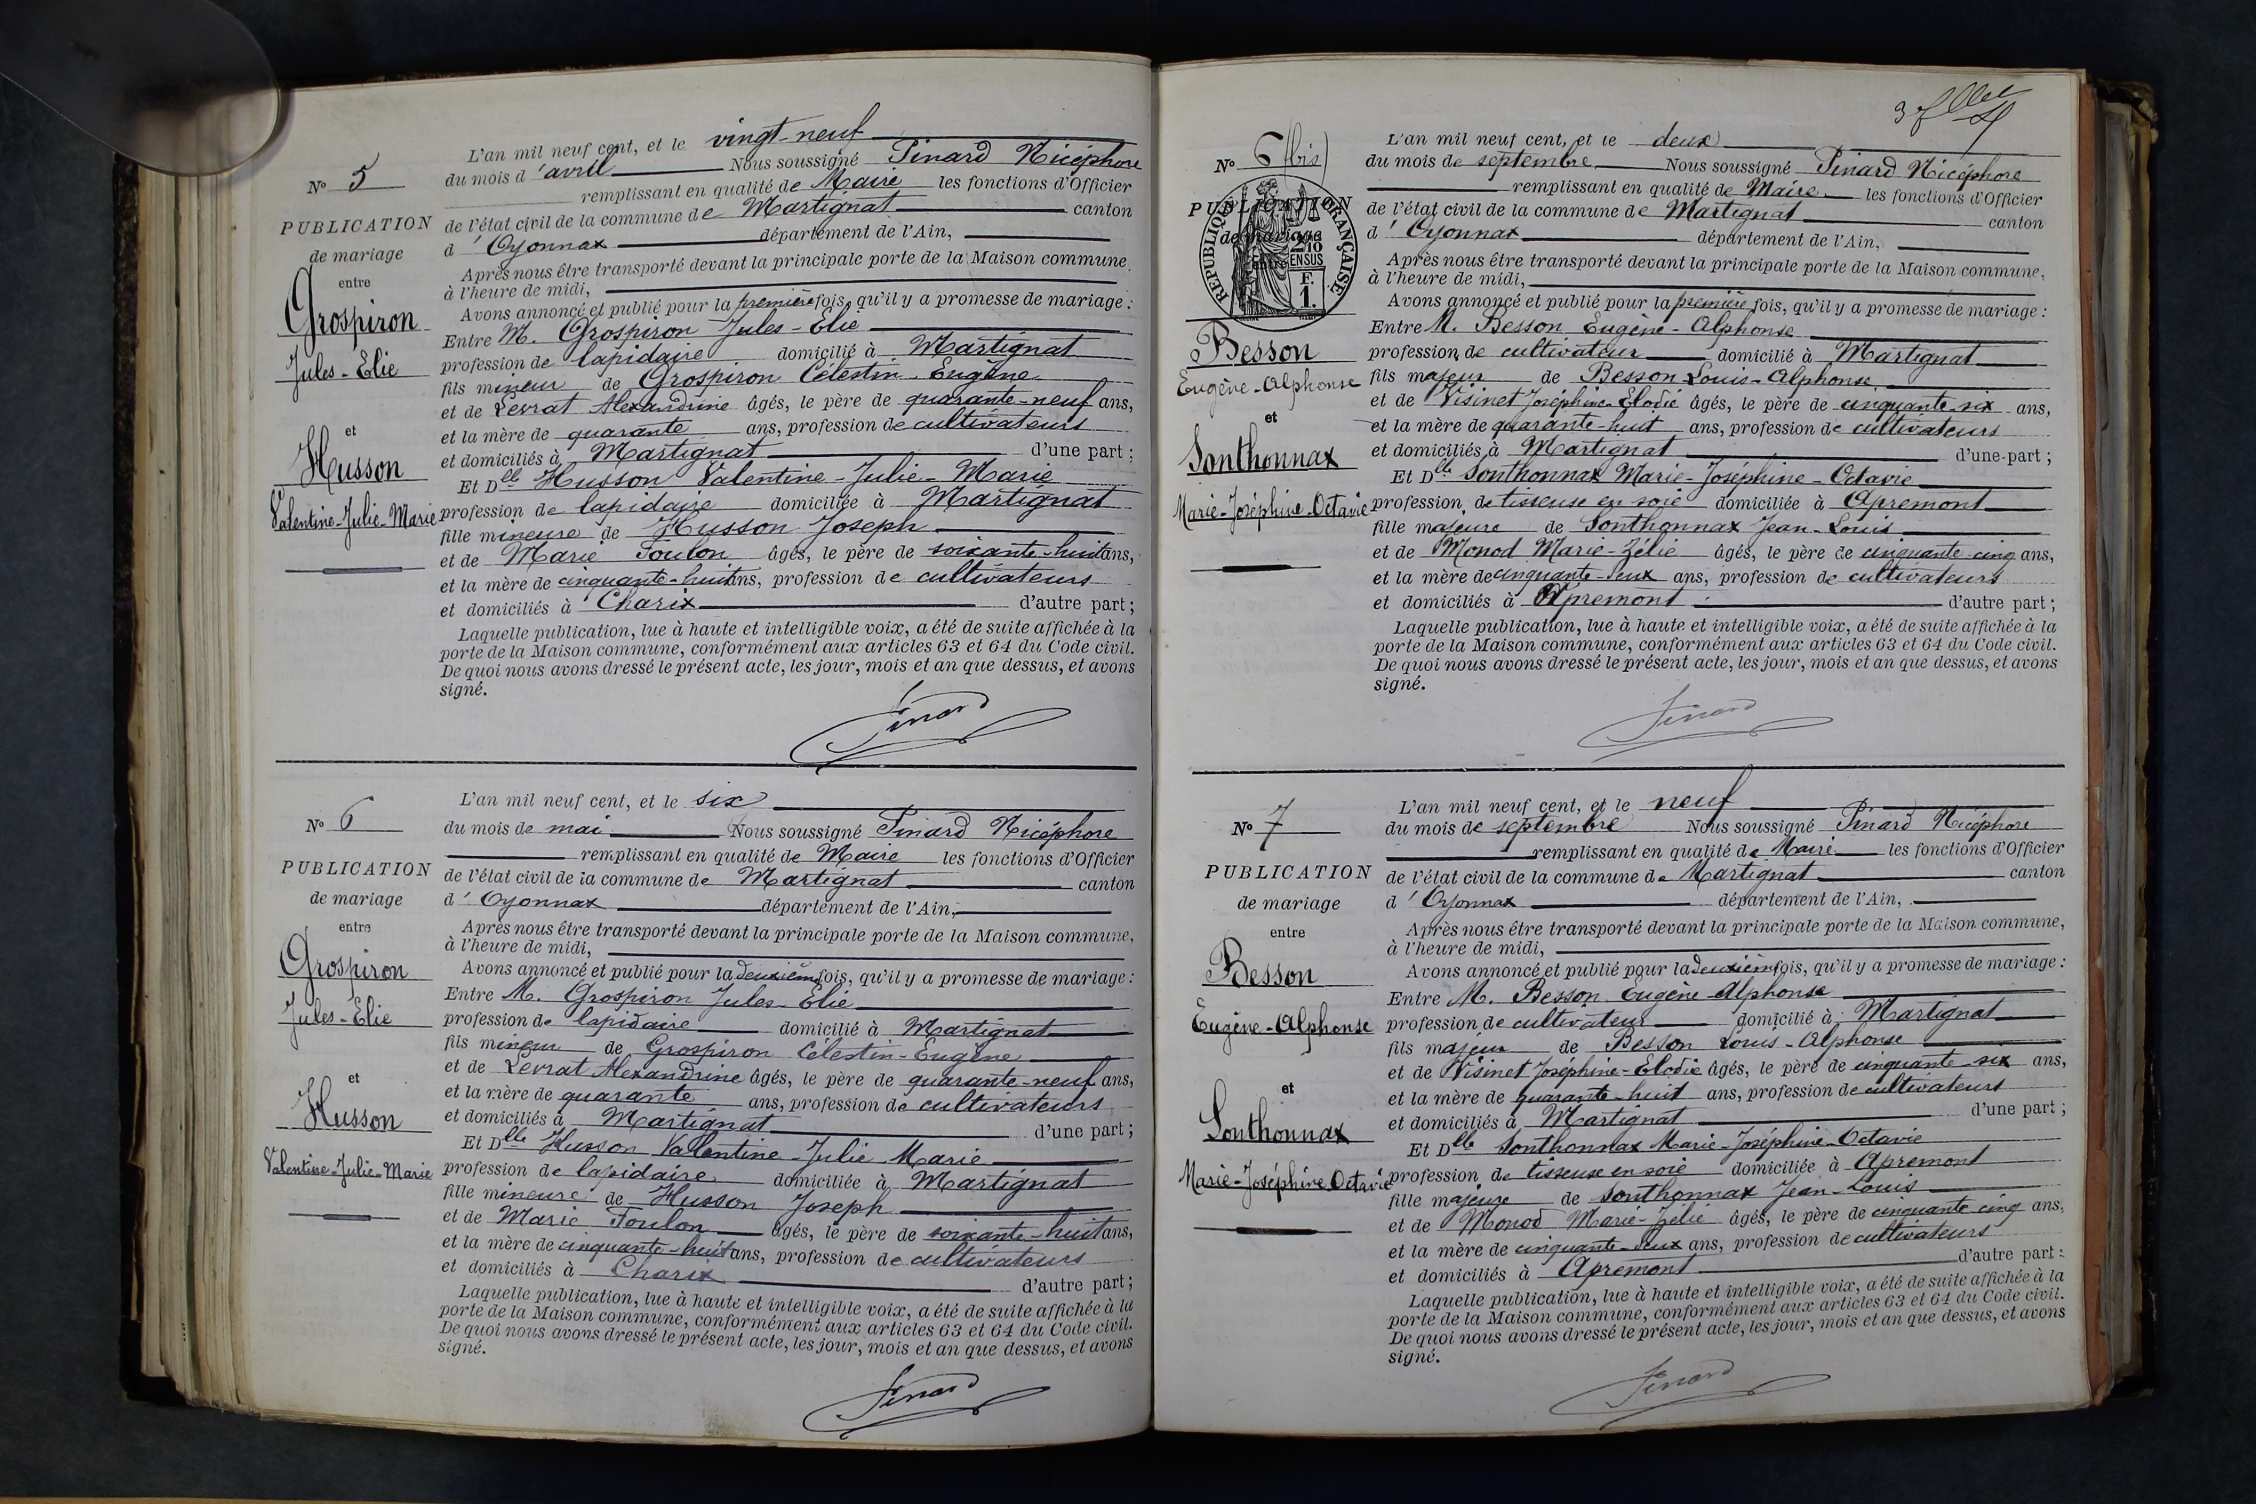 L'an mil neuf cent, et le vingt-neuf
du mois d'avril Nous soussigné Pinard Nicéphore
remplissant en qualité de Maire les fonctions d'Officier
de l'état civil de la commune de Martignat canton
d'Oyonnax département de l'Ain,
Après nous être transporté devant la principale porte de la Maison commune,
à l'heure de midi,
Avons annoncé et publié pour la première fois, qu'il y a promesse de mariage :
Entre M. Grospiron Jules-Élie
profession de lapidaire domicilié à Martignat
fils mineur de Grospiron Célestin-Eugène
et de Levrat Alexandrine âgés, le père de quarante-neuf ans,
et la mère de quarante ans, profession de cultivateurs
et domiciliés à Martignat d'une part ;
Et Dlle Husson Valentine-Julie-Marie
profession de lapidaire domiciliée à Martignat
fille mineure de Husson Joseph
et de Marie Foulon âgés, le père de soixante-huit ans,
et la mère de cinquante-huit ans, profession de cultivateurs
et domiciliés à Charix d'autre part ;
Laquelle publication, lue à haute et intelligible voix, a été de suite affichée à la
porte de la Maison commune, conformément aux articles 63 et 64 du Code civil.
De quoi nous avons dressé le présent acte, les jour, mois et an que dessus, et avons
signé.
Pinard
N° 5
PUBLICATION
de mariage
entre
Grospiron
Jules-Elie
et
Husson
Valentine-Julie-Marie
L'an mil neuf cent, et le six
du mois de mai Nous soussigné Pinard Nicéphore
remplissant en qualité de Maire les fonctions d'Officier
de l'état civil de la commune de Martignat canton
d'Oyonnax département de l'Ain,
Après nous être transporté devant la principale porte de la Maison commune,
à l'heure de midi,
Avons annoncé et publié pour la deuxième fois, qu'il y a promesse de mariage :
Entre M. Grospiron Jules-Elie
profession de lapidaire domicilié à Martignat
fils mineur de Grospiron Célestin-Eugène
et de Levrat Alexandrine âgés, le père de quarante-neuf ans,
et la mère de quarante ans, profession de cultivateurs
et domiciliés à Martignat d'une part ;
Et Dlle Husson Valentine-Julie Marie
profession de lapidaire domiciliée à Martignat
fille mineure de Husson Joseph
et de Marie Foulon âgés, le père de soixante-huit ans,
et la mère de cinquante-huit ans, profession de cultivateurs
et domiciliés à Charix d'autre part ;
Laquelle publication, lue à haute et intelligible voix, a été de suite affichée à la
porte de la Maison commune, conformément aux articles 63 et 64 du Code civil.
De quoi nous avons dressé le présent acte, les jour, mois et an que dessus, et avons
signé.
Pinard
N° 6
PUBLICATION
de mariage
entre
Grospiron
Jules-Elie
et
Husson
Valentine-Julie-Marie
3
L'an mil neuf cent, et le deux
du mois de septembre Nous soussigné Pinard Nicéphore
remplissant en qualité de Maire les fonctions d'Officier
de l'état civil de la commune de Martignat canton
d'Oyonnax département de l'Ain,
Après nous être transporté devant la principale porte de la Maison commune,
à l'heure de midi,
Avons annoncé et publié pour la première fois, qu'il y a promesse de mariage :
Entre M. Besson Eugène-Alphonse
profession de cultivateur domicilié à Martignat
fils majeur de Besson Louis-Alphonse
et de Visinet Joséphine-Elodie âgés, le père de cinquante-six ans,
et la mère de quarante-huit ans, profession de cultivateurs
et domiciliés à Martignat d'une part ;
Et Dlle Sonthonnax Marie-Joséphine-Octavie
profession de tisseuse en soie domiciliée à Apremont
fille majeure de Sonthonnax Jean-Louis
et de Monod Marie-Zélie âgés, le père de cinquante-cinq ans,
et la mère de cinquante-deux ans, profession de cultivateurs
et domiciliés à Apremont d'autre part ;
Laquelle publication, lue à haute et intelligible voix, a été de suite affichée à la
porte de la Maison commune, conformément aux articles 63 et 64 du Code civil.
De quoi nous avons dressé le présent acte, les jour, mois et an que dessus, et avons
signé.
Pinard
N° 6 (bis)
PUBLICATION
de mariage
entre
REPUBLIQUE FRANÇAISE
2/10
EN SUS
F.
1.
Besson
Eugène-Alphonse
et
Sonthonnax
Marie-Joséphine-Octavie
L'an mil neuf cent, et le neuf
du mois de septembre Nous soussigné Pinard Nicéphore
remplissant en qualité de Maire les fonctions d'Officier
de l'état civil de la commune de Martignat canton
d'Oyonnax département de l'Ain,
Après nous être transporté devant la principale porte de la Maison commune,
à l'heure de midi,
Avons annoncé et publié pour la deuxième fois, qu'il y a promesse de mariage :
Entre M. Besson Eugène-Alphonse
profession de cultivateur domicilié à Martignat
fils majeur de Besson Louis-Alphonse
et de Visinet Joséphine-Elodie âgés, le père de cinquante-six ans,
et la mère de quarante-huit ans, profession de cultivateurs
et domiciliés à Martignat d'une part ;
Et Dlle Sonthonnax Marie-Joséphine-Octavie
profession de tisseuse en soie domiciliée à Apremont
fille majeure de Sonthonnax Jean-Louis
et de Monod Marie-Zélie âgés, le père de cinquante cinq ans,
et la mère de cinquante-deux ans, profession de cultivateurs
et domiciliés à Apremont d'autre part :
Laquelle publication, lue à haute et intelligible voix, a été de suite affichée à la
porte de la Maison commune, conformément aux articles 63 et 64 du Code civil.
De quoi nous avons dressé le présent acte, les jour, mois et an que dessus, et avons
signé.
Pinard
N° 7
PUBLICATION
de mariage
entre
Besson
Eugène-Alphonse
et
Sonthonnax
Marie-Joséphine-Octavie